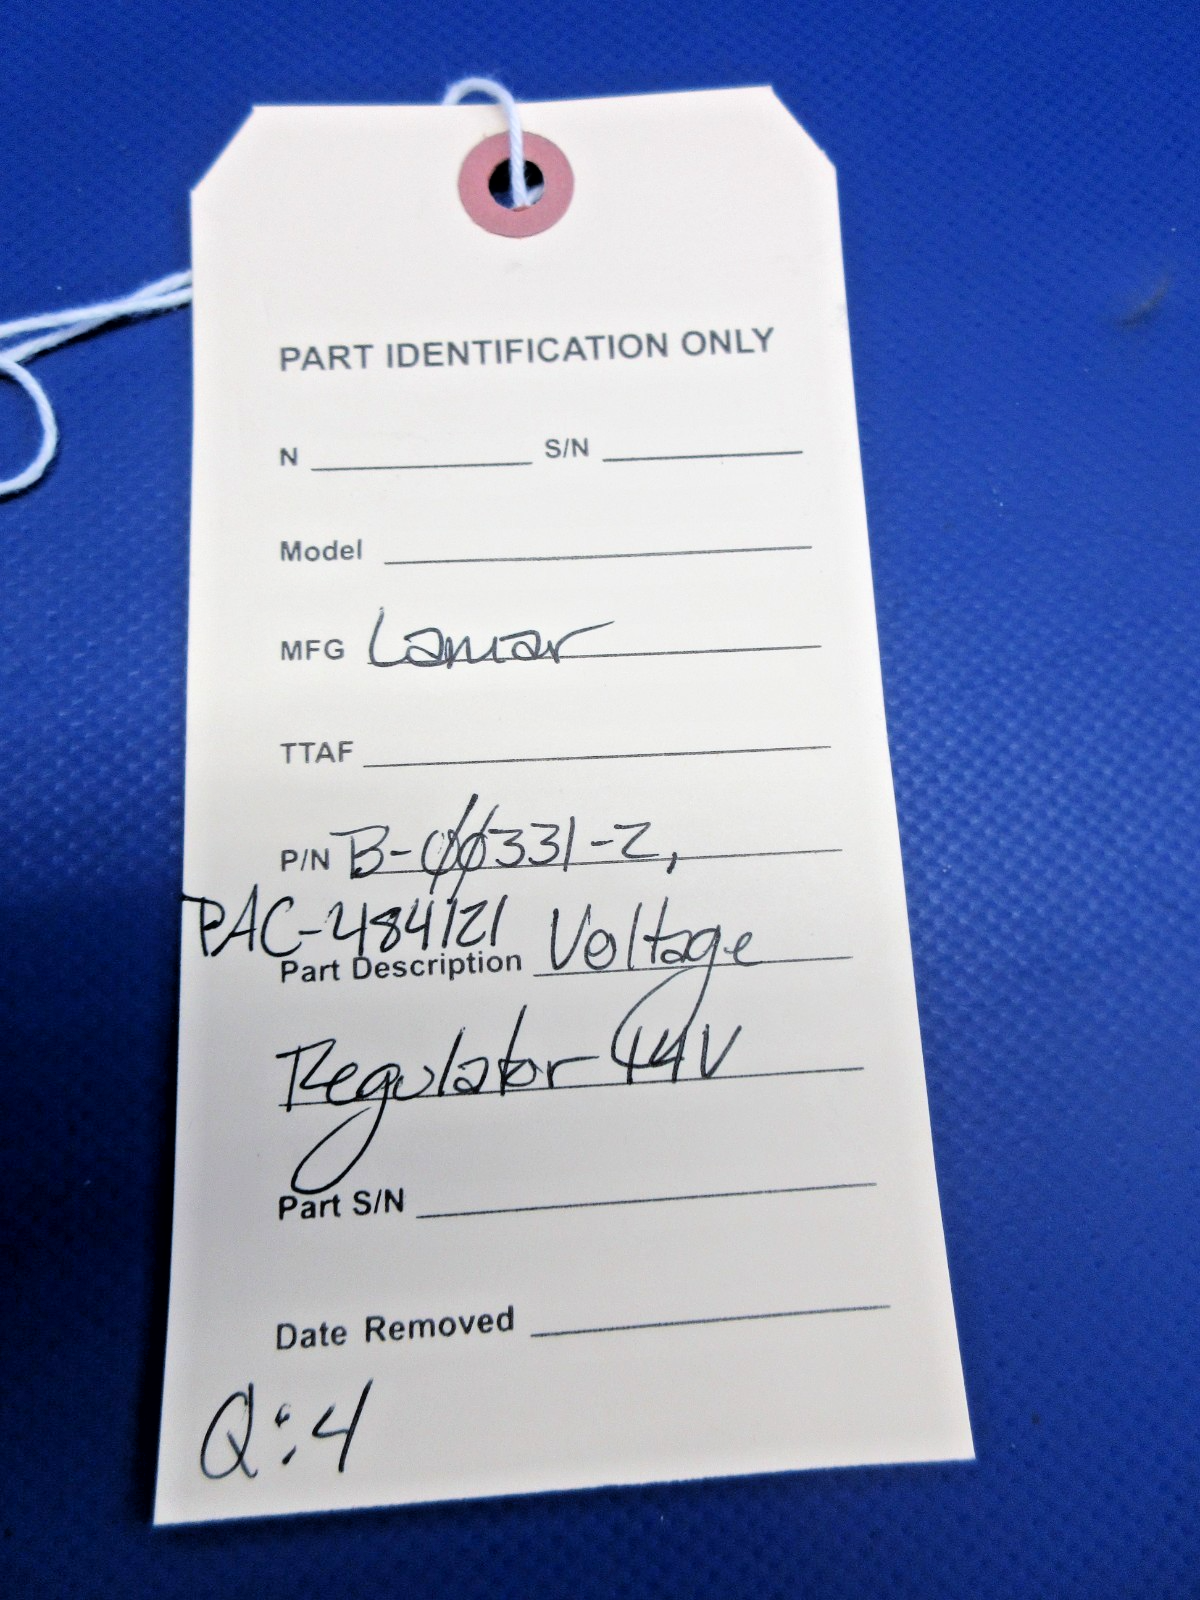 PART IDENTIFICATION ONLY
N S/N
Model
MFG Lamar
TTAF
P/N B-00331-2,
PAC-484121
Part Description Voltage
Regulator 14V
Part S/N
Date Removed
Q:4